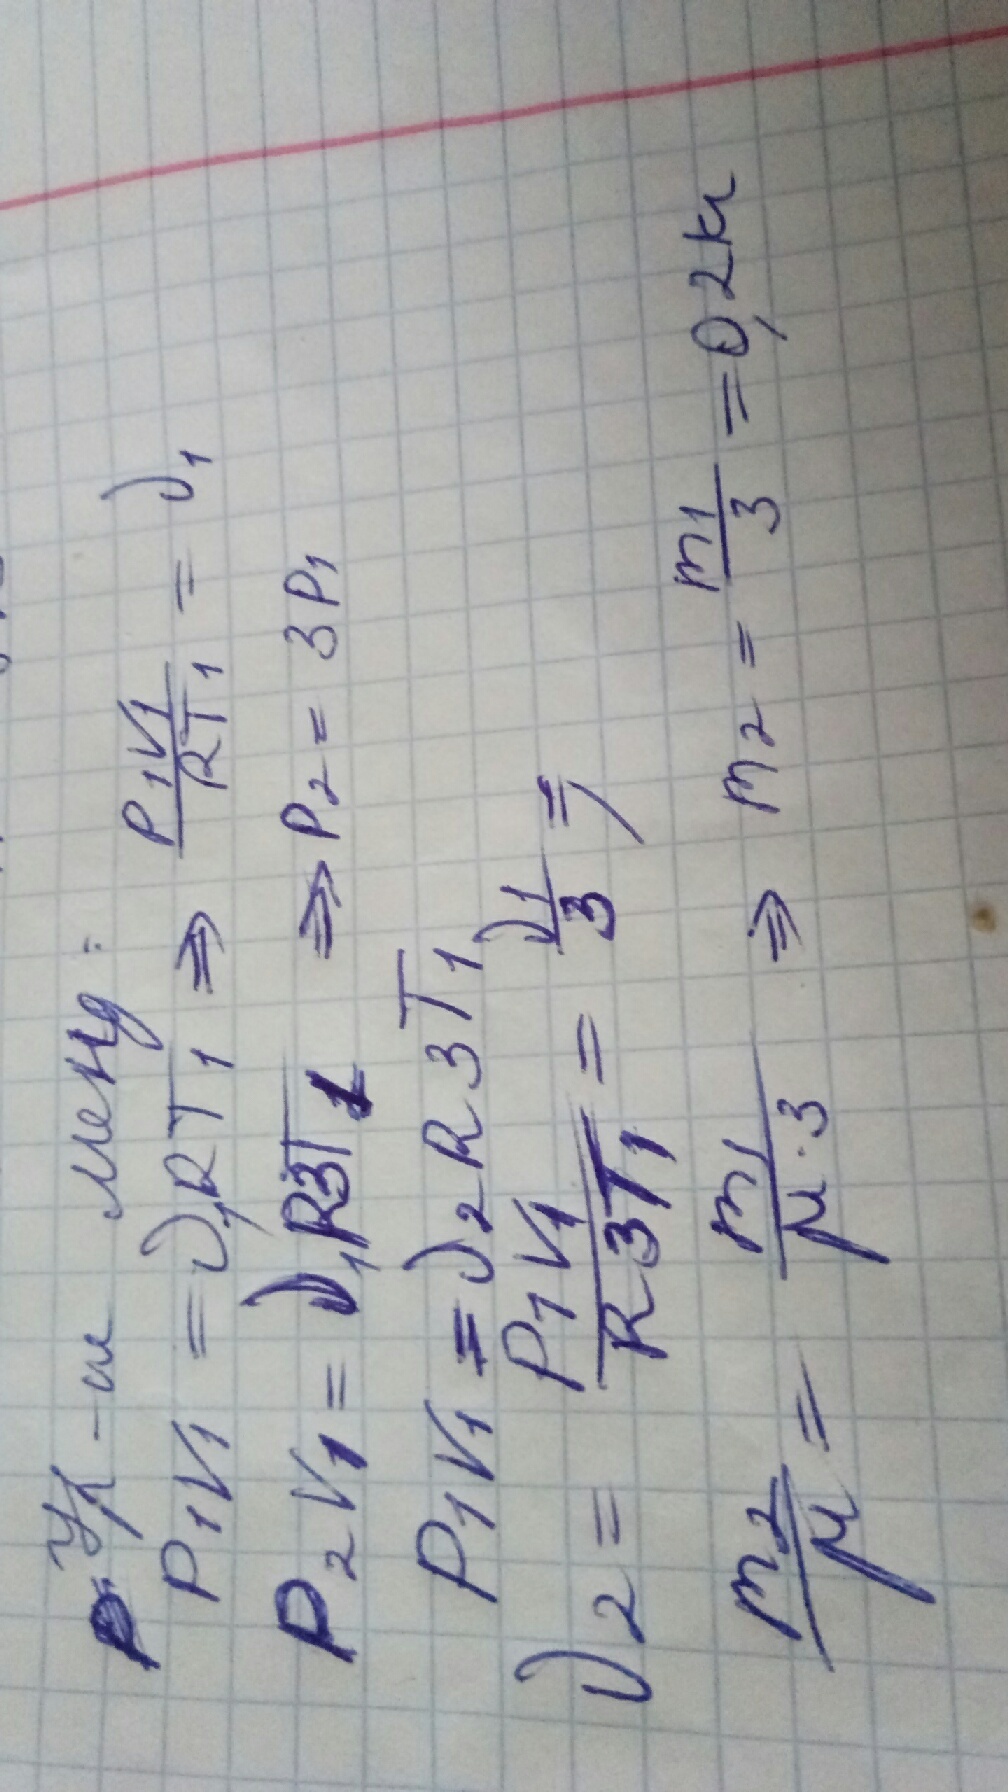 Ур-и менд:
P₁V₁ = ν₁RT₁ ⇒ P₁V₁/RT₁ = ν₁
P₂V₁ = ν₁R3T₁ ⇒ P₂ = 3P₁
P₁V₁ = ν₂R3T₁
ν₂ = P₁V₁/R3T₁ = ν₁/3 ⇒
m₂/μ = m₁/μ·3 ⇒ m₂ = m₁/3 = 0,2кг